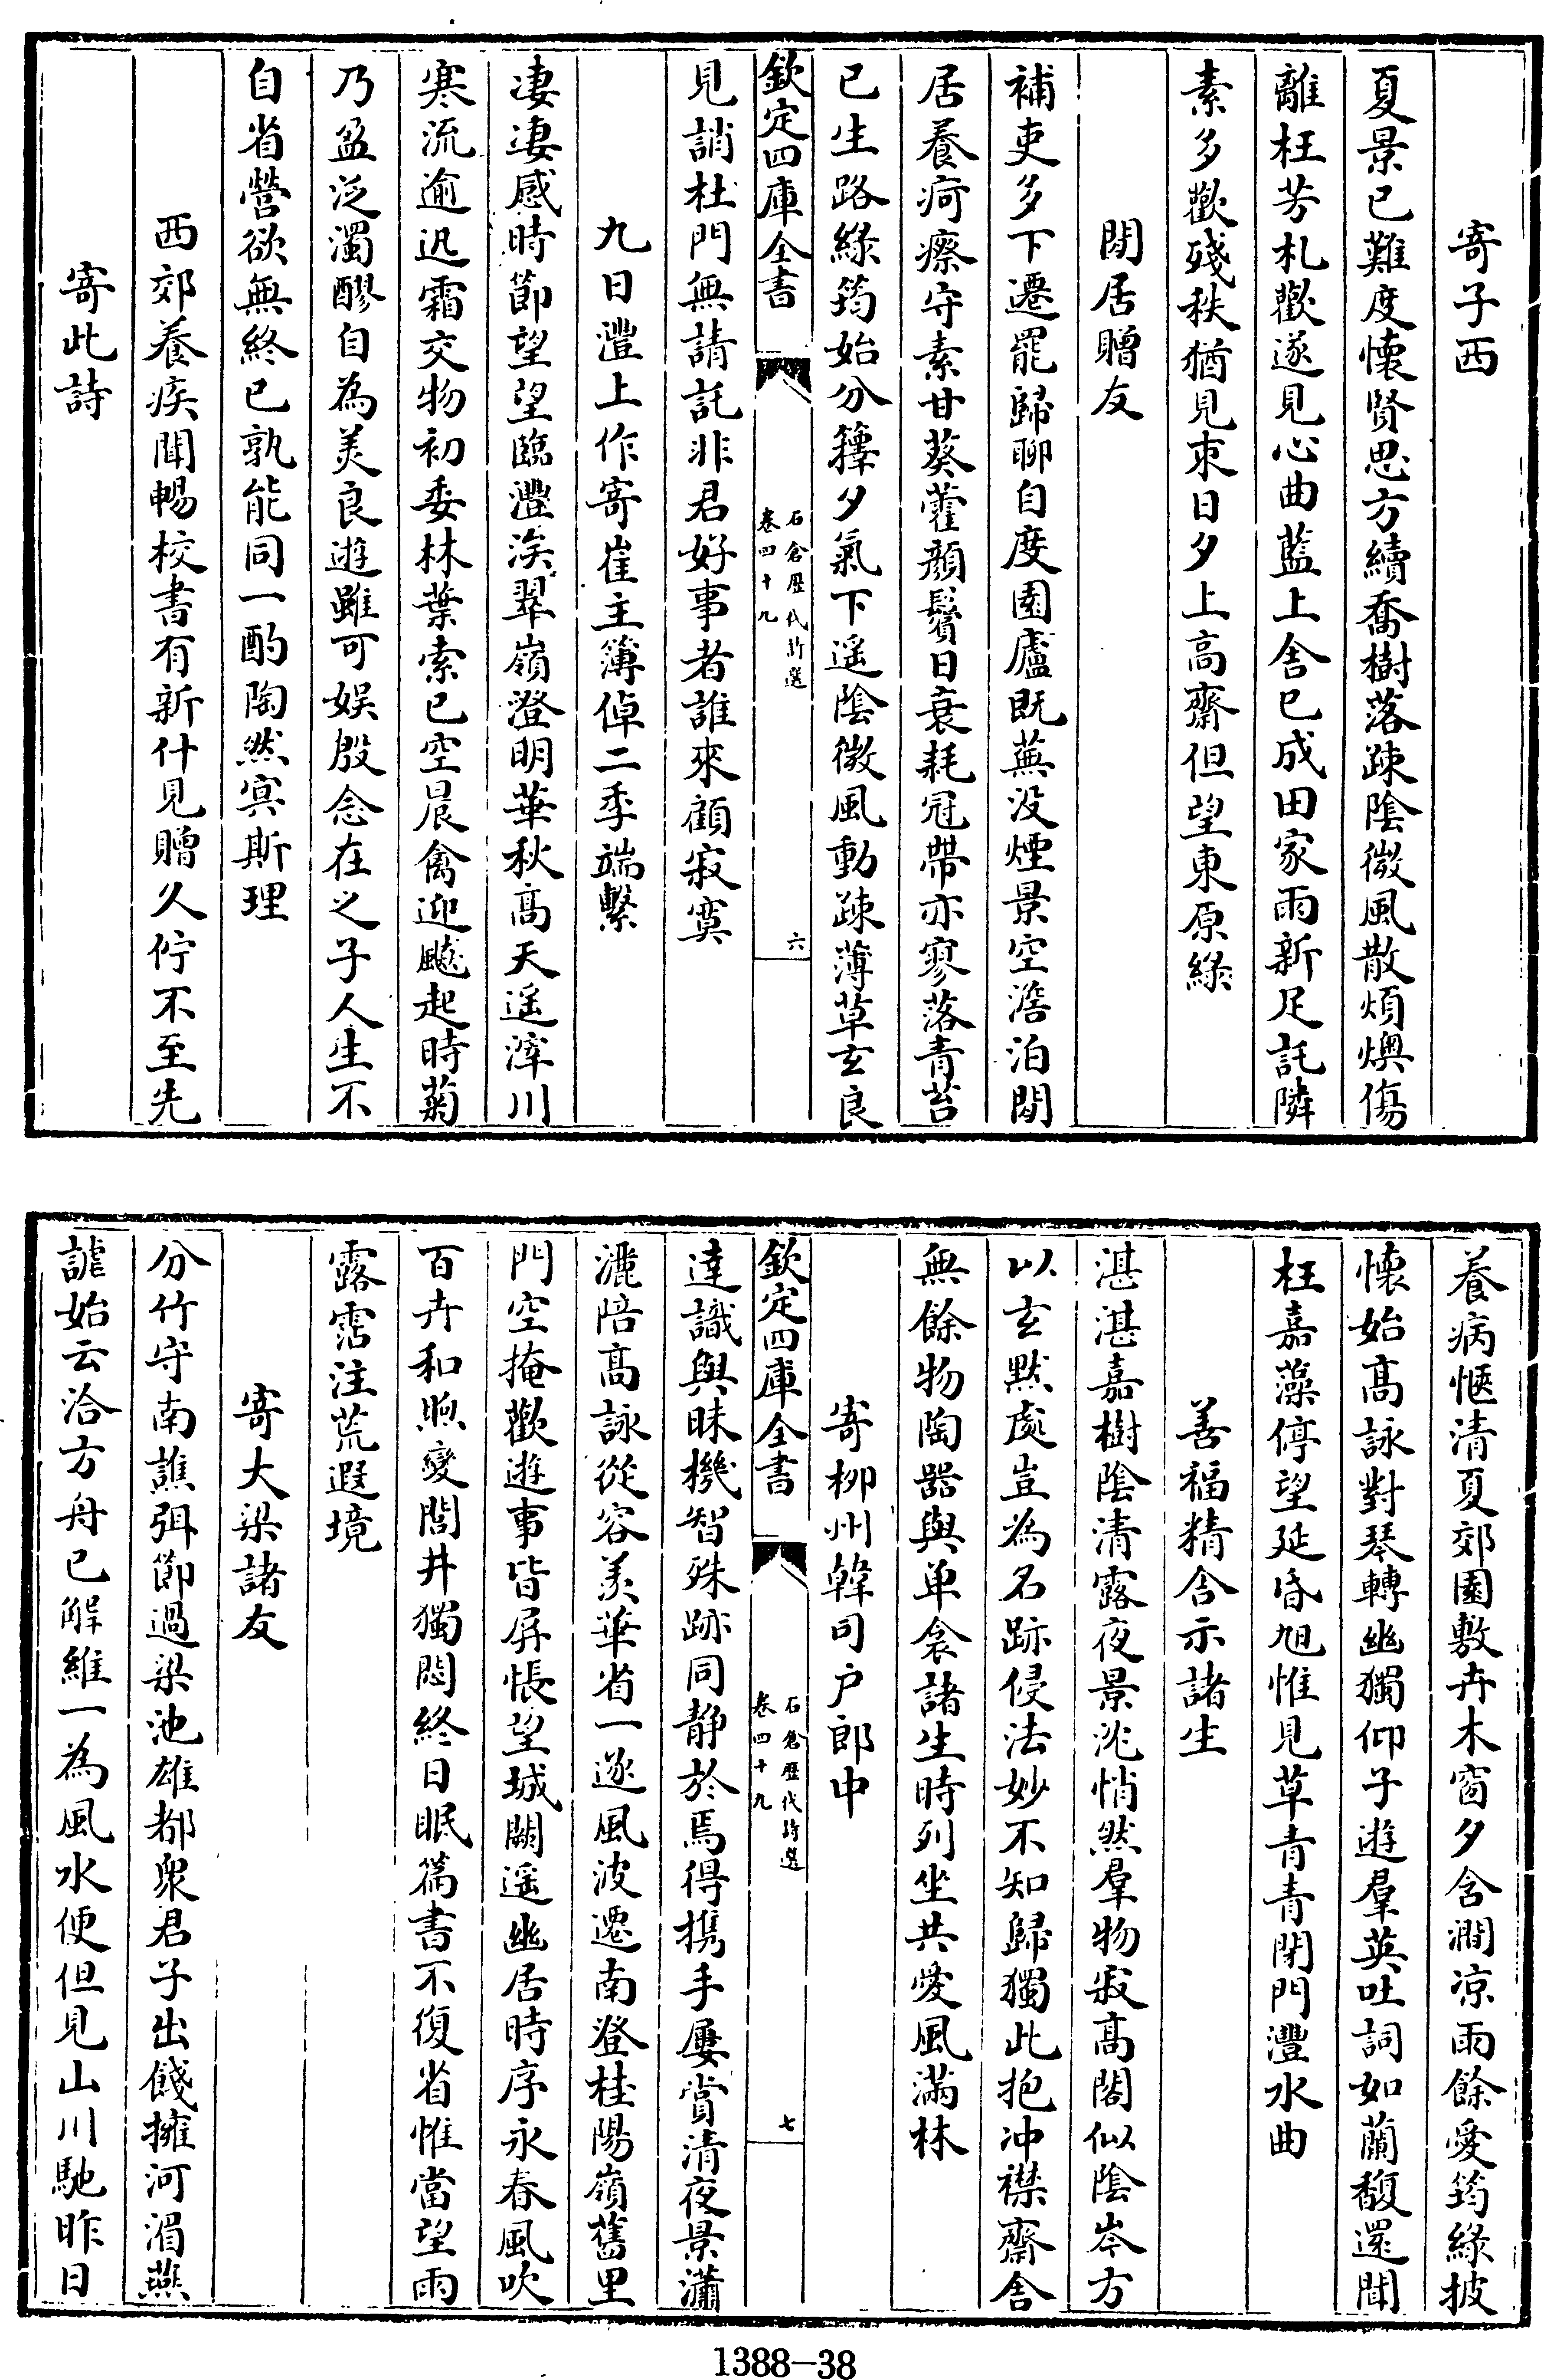 寄子西
夏景已難度懷賢思方續喬樹落疎陰微風散煩燠傷
離枉芳札歡遂見心曲藍上舍已成田家雨新足託隣
素多歡殘秩猶見束日夕上高齋但望東原緑
閒居贈友
補吏多下遷罷歸聊自度園廬既蕪没煙景空澹泊閒
居養疴瘵守素甘葵藿顔鬢日衰耗冠帶亦寥落青苔
已生路緑筠始分籜夕氣下遥陰微風動疎薄草玄良
欽定四庫全書
石倉歷代詩選
卷四十九
六
見誚杜門無請託非君好事者誰來顧寂寞
九日灃上作寄崔主簿倬二季端繫
凄凄感時節望望臨灃涘翠嶺澄明華秋高天遥滓川
寒流逾迅霜交物初委林葉索已空晨禽迎飈起時菊
乃盈泛濁醪自為美良遊雖可娱殷念在之子人生不
自省營欲無終已孰能同一酌陶然㝠斯理
西郊養疾聞暢校書有新什見贈久佇不至先
寄此詩
養病愜清夏郊園敷卉木窗夕含澗凉雨餘愛筠緑披
懷始高詠對琴轉幽獨仰子遊羣英吐詞如蘭馥還聞
枉嘉藻停望延昏旭惟見草青青閉門灃水曲
善福精舍示諸生
湛湛嘉樹陰清露夜景沈悄然羣物寂高閣似陰岑方
以玄黙處豈為名跡侵法妙不知歸獨此抱冲襟齋舍
無餘物陶器與单衾諸生時列坐共愛風滿林
寄栁州韓司户郎中
欽定四庫全書
石倉歷代詩選
卷四十九
七
達識與昧機智殊跡同静於焉得携手屢賞清夜景瀟
灑陪高詠從容羡華省一遂風波遷南登桂陽嶺舊里
門空掩歡遊事皆屏悵望城闕遥幽居時序永春風吹
百卉和煦變閭井獨悶終日眠篇書不復省惟當望雨
露霑注荒遐境
寄大梁諸友
分竹守南譙弭節過梁池雄都衆君子出餞擁河湄燕
謔始云洽方舟已解維一為風水便但見山川馳昨日
1388-38